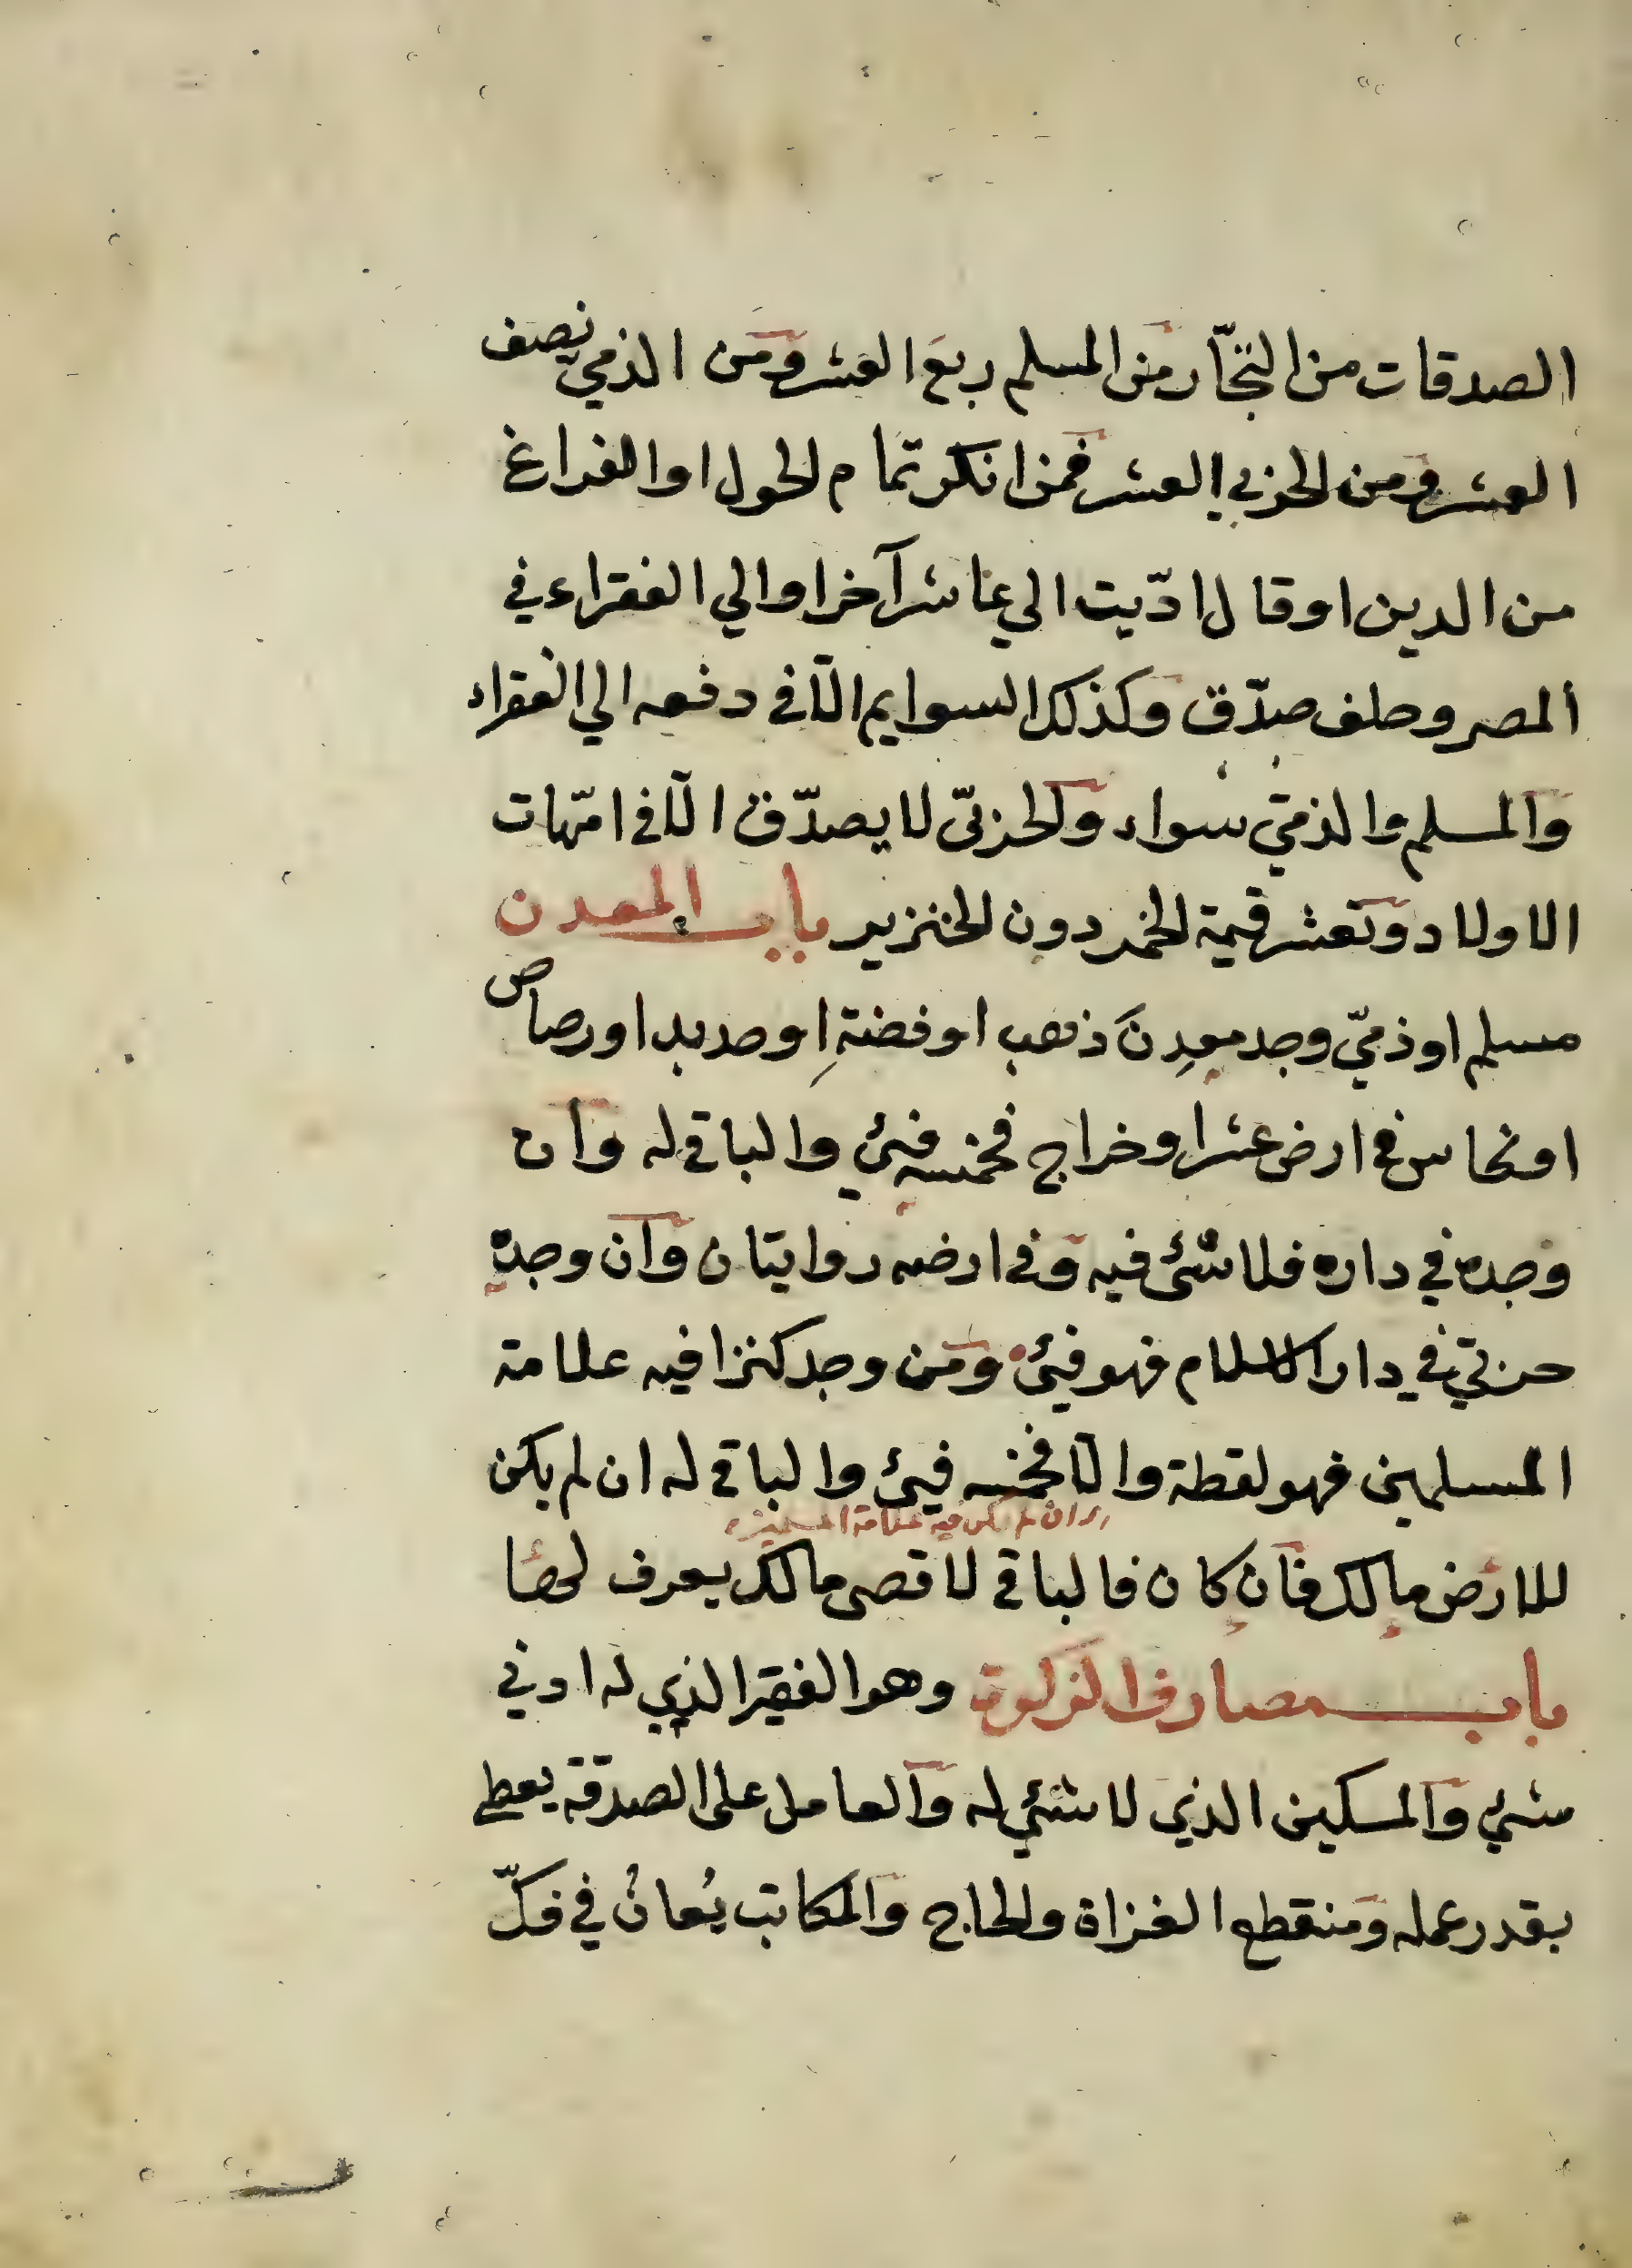 الصدقات من التجّار من المسلم ربع العشر ومن الذمي نصف
العشر ومن الحربي العشر فمن انكر تمام الحول او الفراغ
من الدين او قال ادّيت الي عاشر آخر او الي الفقراء في
المصر وحلف صدّق وكذلك السوايم الّا في دفعه الي الفقراء
والمسلم والذميّ سواء والحربيّ لا يصدّق الّا في امّهات
الاولاد وتعشر قيمة الخمر دون الخنزير باب المعدن
مسلم او ذميّ وجد معدِنَ ذهب او فضةِ او حديد او رصاص
او نحاس في ارض عشر او خراج فخمسه فيئ والباقي له وان
وجده في داره فلا شئ فيه وفي ارضه روايتان وان وجده
حربي في دار الاسلام فهو فيئ ومن وجد كنزا فيه علامة
المسلمين فهو لقطة والّا فخمسه فيئ والباقي له ان لم يكن
اي ان لم يكن فيه علامة المسلمين
للارض مالك فان كان فالباقي لاقصى مالك يعرف لها
باب مصارف الزكوة وهو الفقير الذي له ادني
شيئ والمسكين الذي لا شئي له والعامل على الصدقة يعطى
بقدر عمله ومنقطع الغزاة والحاج والمكاتب يُعانُ في فكّ